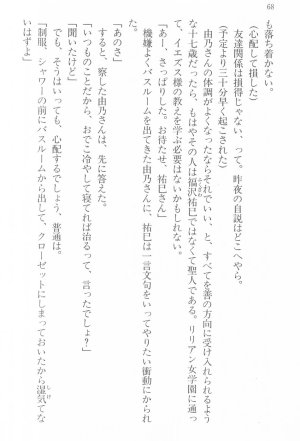 68
も落ち着かない。
友達関係は損得じゃない、って。昨夜の自説はどこへやら。
(心配して損した)
(予定より三十分早く起こされた)
由乃さんの体調がよくなったならそれでいい、と、すべてを善の方向に受け入れられるよう
な十七歳だったら、もはやその人は福沢祐巳ではなくて聖人である。リリアン女学園に通っ
て、イエズス様の教えを学ぶ必要はないかもしれない。
「あー、さっぱりした。お待たせ、祐巳さん」
機嫌よくバスルームを出てきた由乃さんに、祐巳は一言文句をいってやりたい衝動にかられ
た。
「あのさ」
すると、察した由乃さんは、先に答えた。
「いつものことだから、おでこ冷やして寝てれば治るって、言ったでしょ?」
「聞いたけど」
でも、そうはいっても、心配するでしょう、普通は。
「制服、シャワーの前にバスルームから出して、クローゼットにしまっておいたから湿気てな
いはずよ」